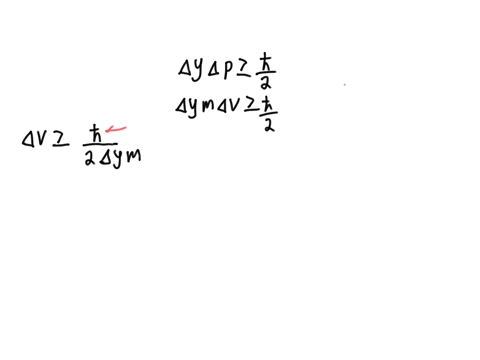 Δy Δp ≥ ħ/2
Δy m Δv ≥ ħ/2
Δv ≥ ħ/(2 Δy m)